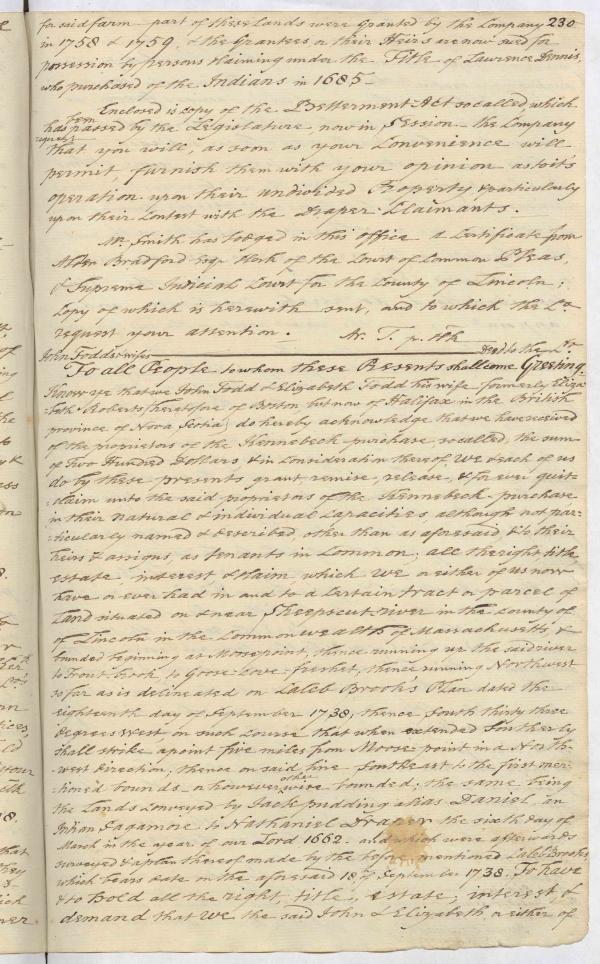 for said farm - part of these lands were Granted by the Company 230
in 1758 & 1759, & the Grantees or their Heirs are now sued for
possession by persons Claiming under the Title of Lawrence Dennis,
who purchased of the Indians in 1685 -
Enclosed is copy of the Betterment-Act so called, which
has been passed by the Legislature, now in Session - the Company
request that you will, as soon as your Convenience will
permit, furnish them with your opinion as to it's
operation upon their undivided Property & particularly
upon their Contest with the Draper-Claimants.
Mr. Smith has lodged in this office a Certificate from
Alden Bradford Esqr. Clerk of the Court of Common Pleas,
& Supreme Judicial Court for the County of Lincoln;
Copy of which is herewith sent, and to which the Co.
request your attention. Ar. T. p. Clk
John Todd & wifes Deed to the Co.
To all People to whom these Presents shall come Greeting.
Know ye that we John Todd & Elizabeth Todd his wife formerly Eliza-
-beth Roberts, (heretofore of Boston, but now of Halifax in the British
province of Nova Scotia) do hereby acknowledge that we have received
of the proprietors of the Kennebeck purchase so called, the sum
of Two Hundred Dollars, & in Consideration thereof We & each of us
do by these presents, grant, remise, release, & for ever quit-
-claim unto the said proprietors of the Kennebeck purchase
in their natural & individual Capacities, although not par-
-ticularly named & described, other than as aforesaid, & to their
heirs & assigns, as tenants in Common; all the right, title,
estate, interest & claim which We or either of us now
have or ever had in and to a Certain tract or parcel of
Land situated on & near Sheepscut-river in the County of
of Lincoln in the Commonwealth of Massachusetts, &
bounded beginning at Moose point, thence running up the said river
to Trout-brook, to Goose-Cove freshet, thence running Northwest
so far as is delineated on Caleb Brook's Plan dated the
eighteenth day of September 1738, thence South thirty three
degrees West, on such Course that when extended Southerly
shall strike a point five miles from Moose point in a North-
-west direction, thence on said line Southeast to the first men-
-tioned bounds - or however otherwise bounded; the same being
the Lands Conveyed by Jack pudding alias Daniel, an
Indian Sagamore to Nathaniel Draper the sixth day of
March in the year of our Lord 1662 - and which were afterwards
surveyed & a plan thereof made by the before mentioned Caleb Brooks,
which bears date on the aforesaid 18th September 1738. To have
& to Hold all the right, title, estate, interest &
demand that We the said John & Elizabeth or either of